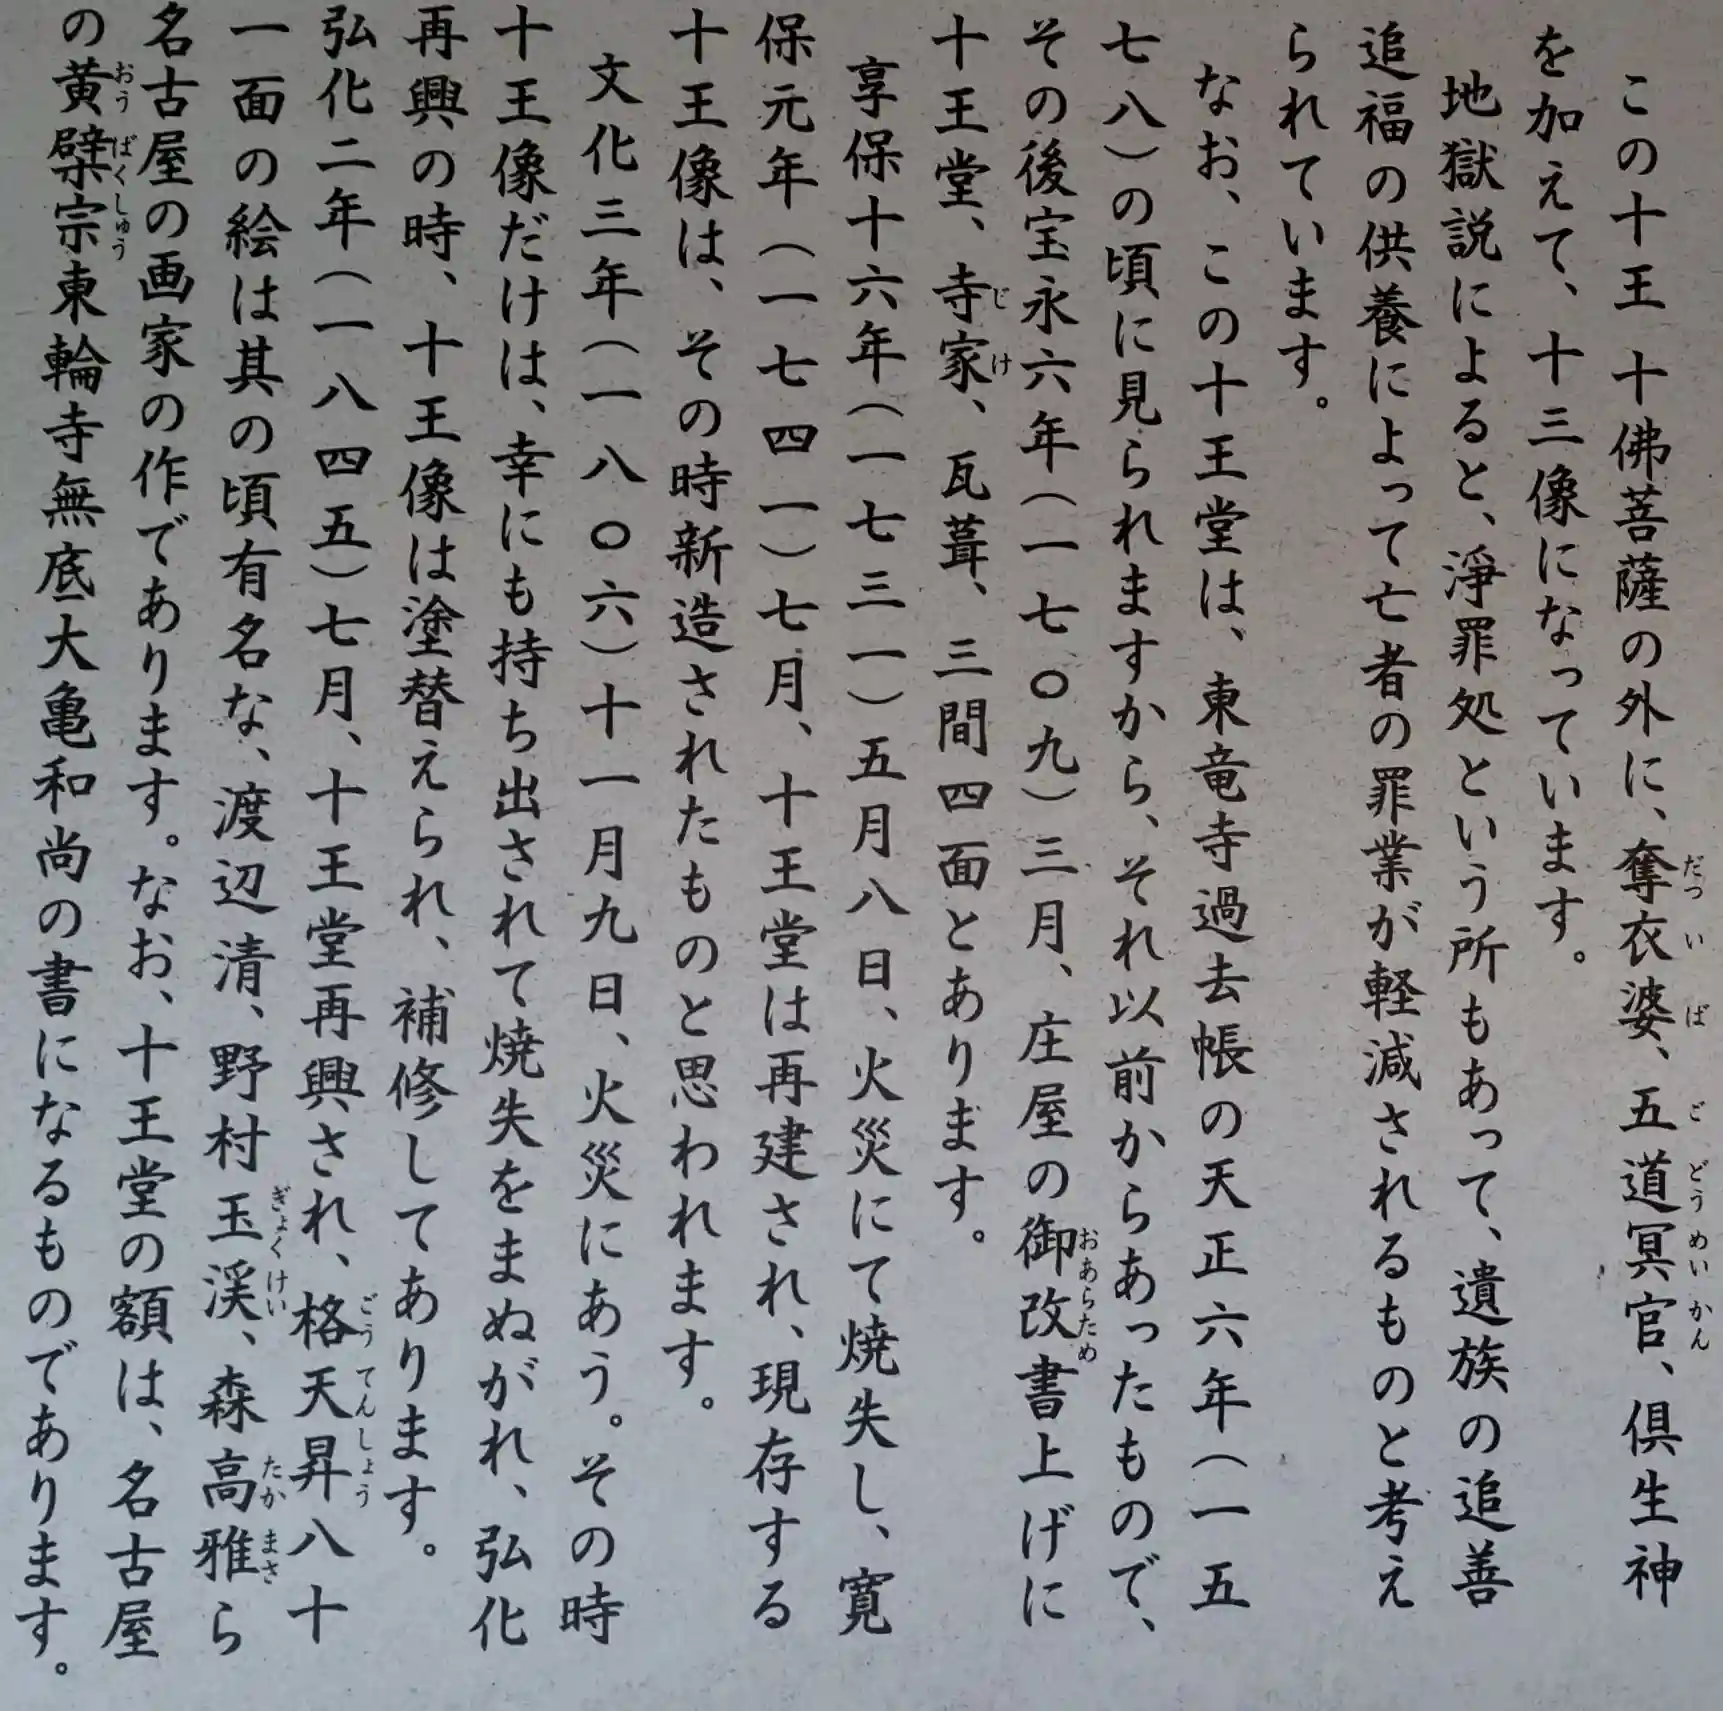 この十王 十佛菩薩の外に、奪衣婆、五道冥官、倶生神
を加えて、十三像になっています。
地獄説によると、淨罪処という所もあって、遺族の追善
追福の供養によって亡者の罪業が軽減されるものと考え
られています。
なお、この十王堂は、東竜寺過去帳の天正六年（一五
七八）の頃に見られますから、それ以前からあったもので、
その後宝永六年（一七〇九）三月、庄屋の御改書上げに
十王堂、寺家、瓦葺、三間四面とあります。
享保十六年（一七三一）五月八日、火災にて焼失し、寛
保元年（一七四一）七月、十王堂は再建され、現存する
十王像は、その時新造されたものと思われます。
文化三年（一八〇六）十一月九日、火災にあう。その時
十王像だけは、幸にも持ち出されて焼失をまぬがれ、弘化
再興の時、十王像は塗替えられ、補修してあります。
弘化二年（一八四五）七月、十王堂再興され、格天昇八十
一面の絵は其の頃有名な、渡辺清、野村玉渓、森高雅ら
名古屋の画家の作であります。なお、十王堂の額は、名古屋
の黄檗宗東輪寺無底大亀和尚の書になるものであります。